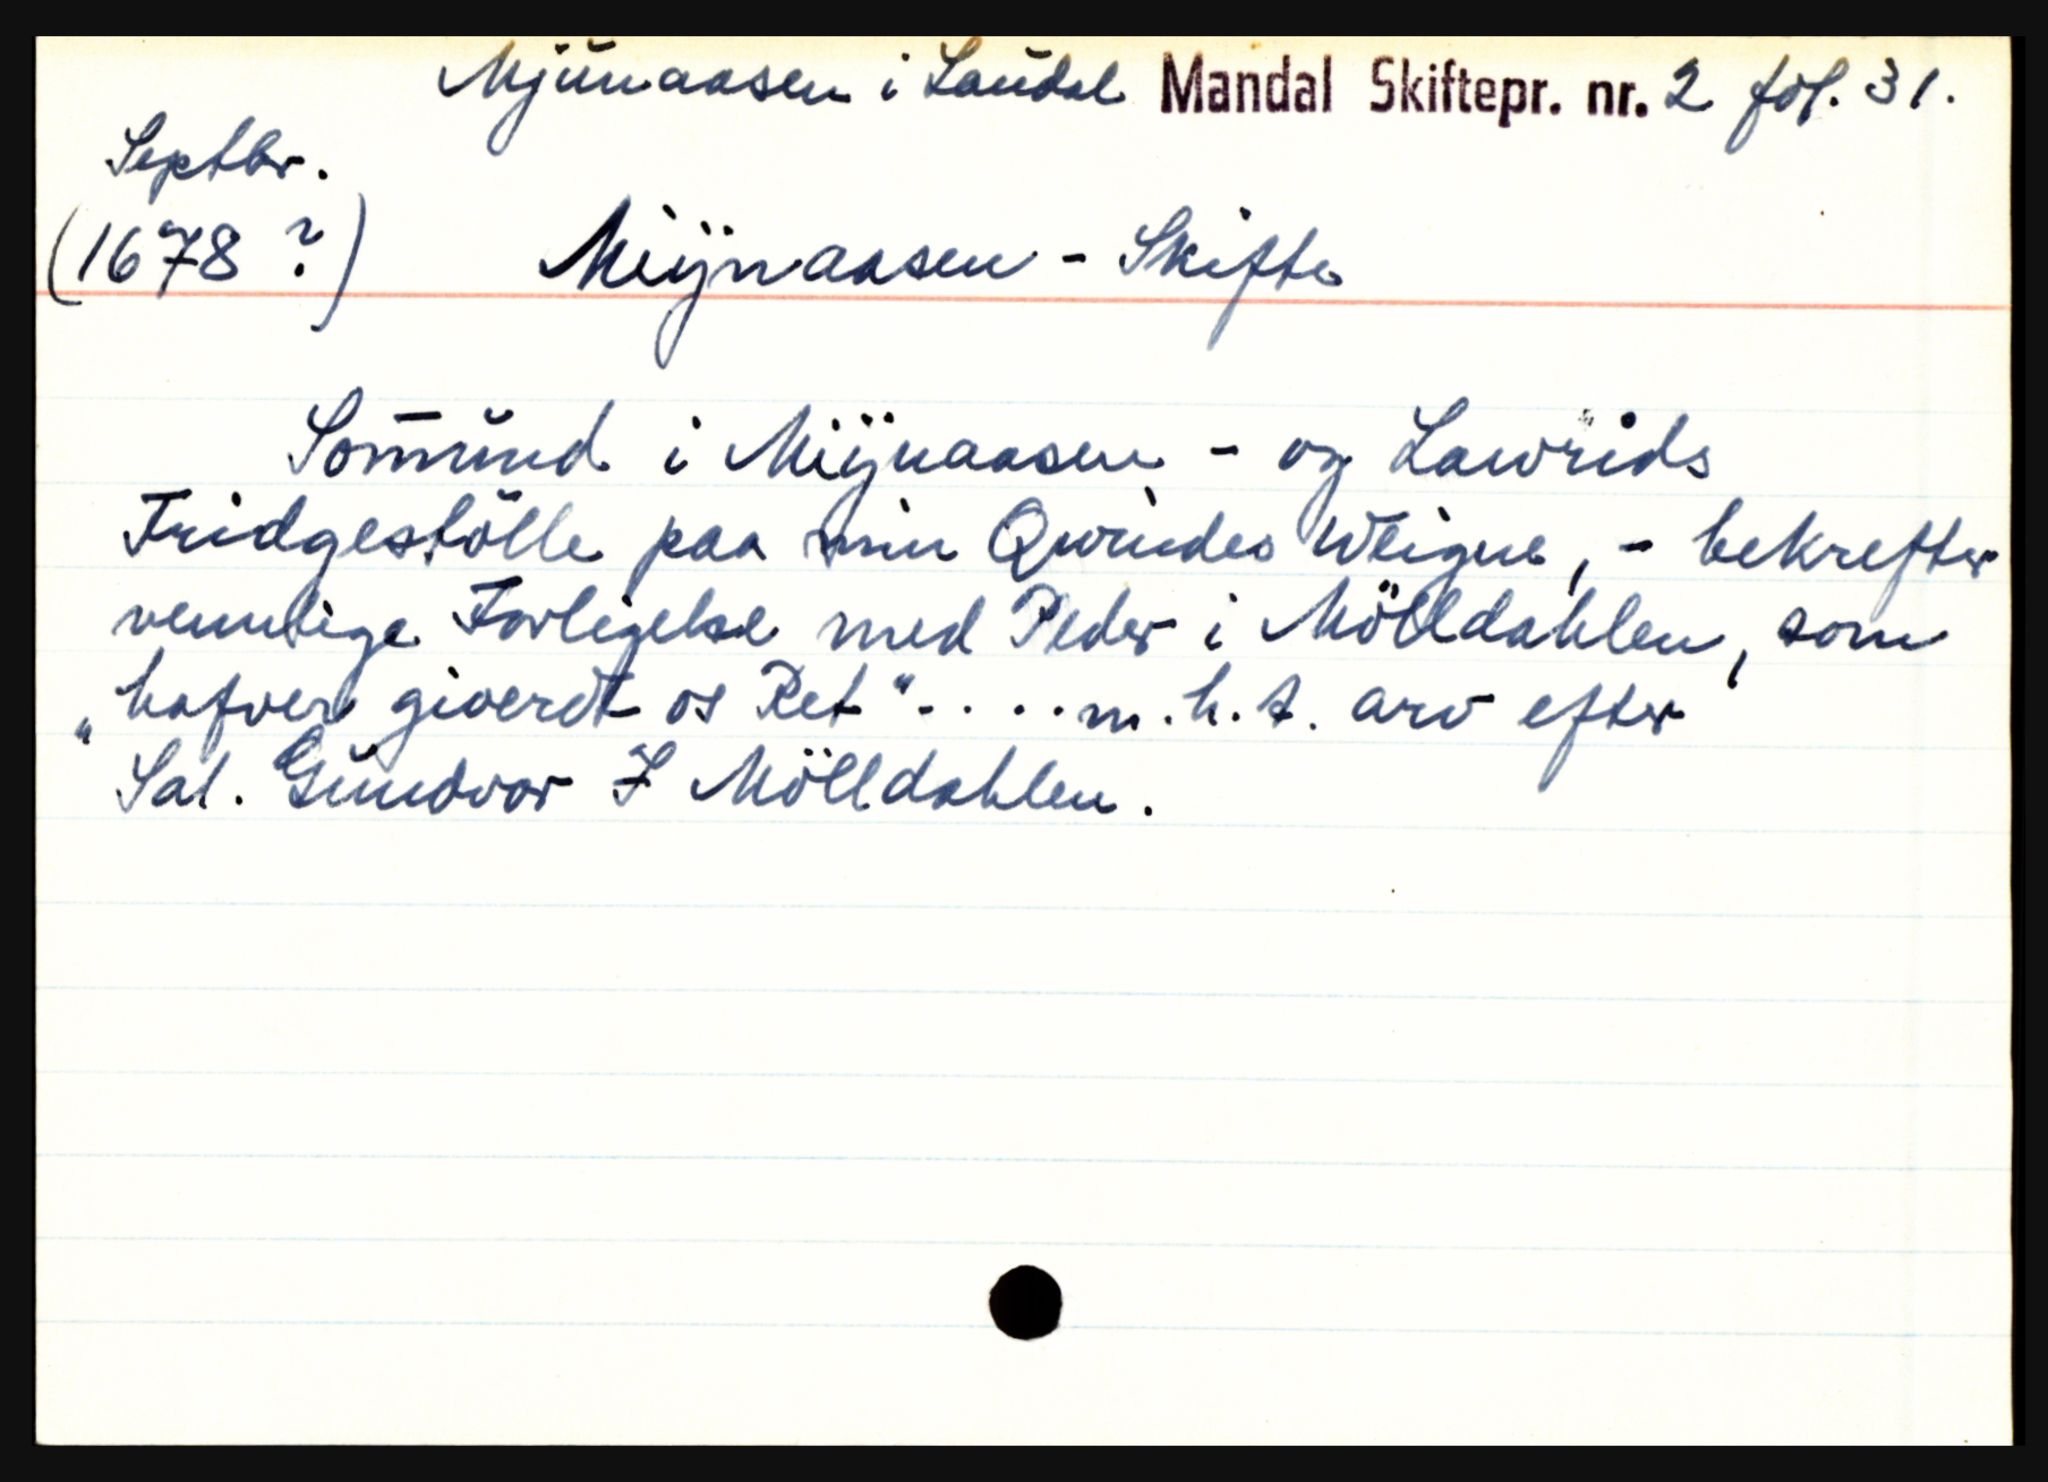 Mjunaasen i Laudal Mandal Skiftepr. nr. 2 fol. 31.
Septbr.
(1678 ?) Meijnaasen - Skifte
Som̄und i Meijnaasen - og Lawrids
Fridgestölle paa min Qwindes Weigne, - bekrefter
venndlige Forligelse med Peder i Mölldahlen, som
„hafver giverdt os Ret" - . . . . m.h.t. arv efter
„Sal. Gundvor I Mölldahlen.